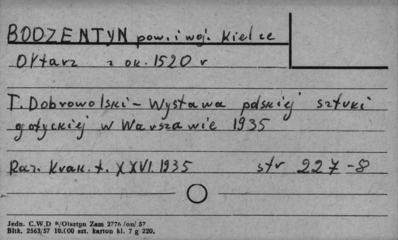 BODZENTYN pow. i woj. Kielce
Ołtarz z ok. 1520 r
T. Dobrowolski - Wystawa polskiej sztuki
gotyckiej w Warszawie 1935
Raz. Krak. t. XXVI. 1935 str 227-8
Jedn. C.W.D Olsztyn Zam 2776 /on/ 57
Bltk. 2563/57 10.000 szt. karton kl. 7 g 220.